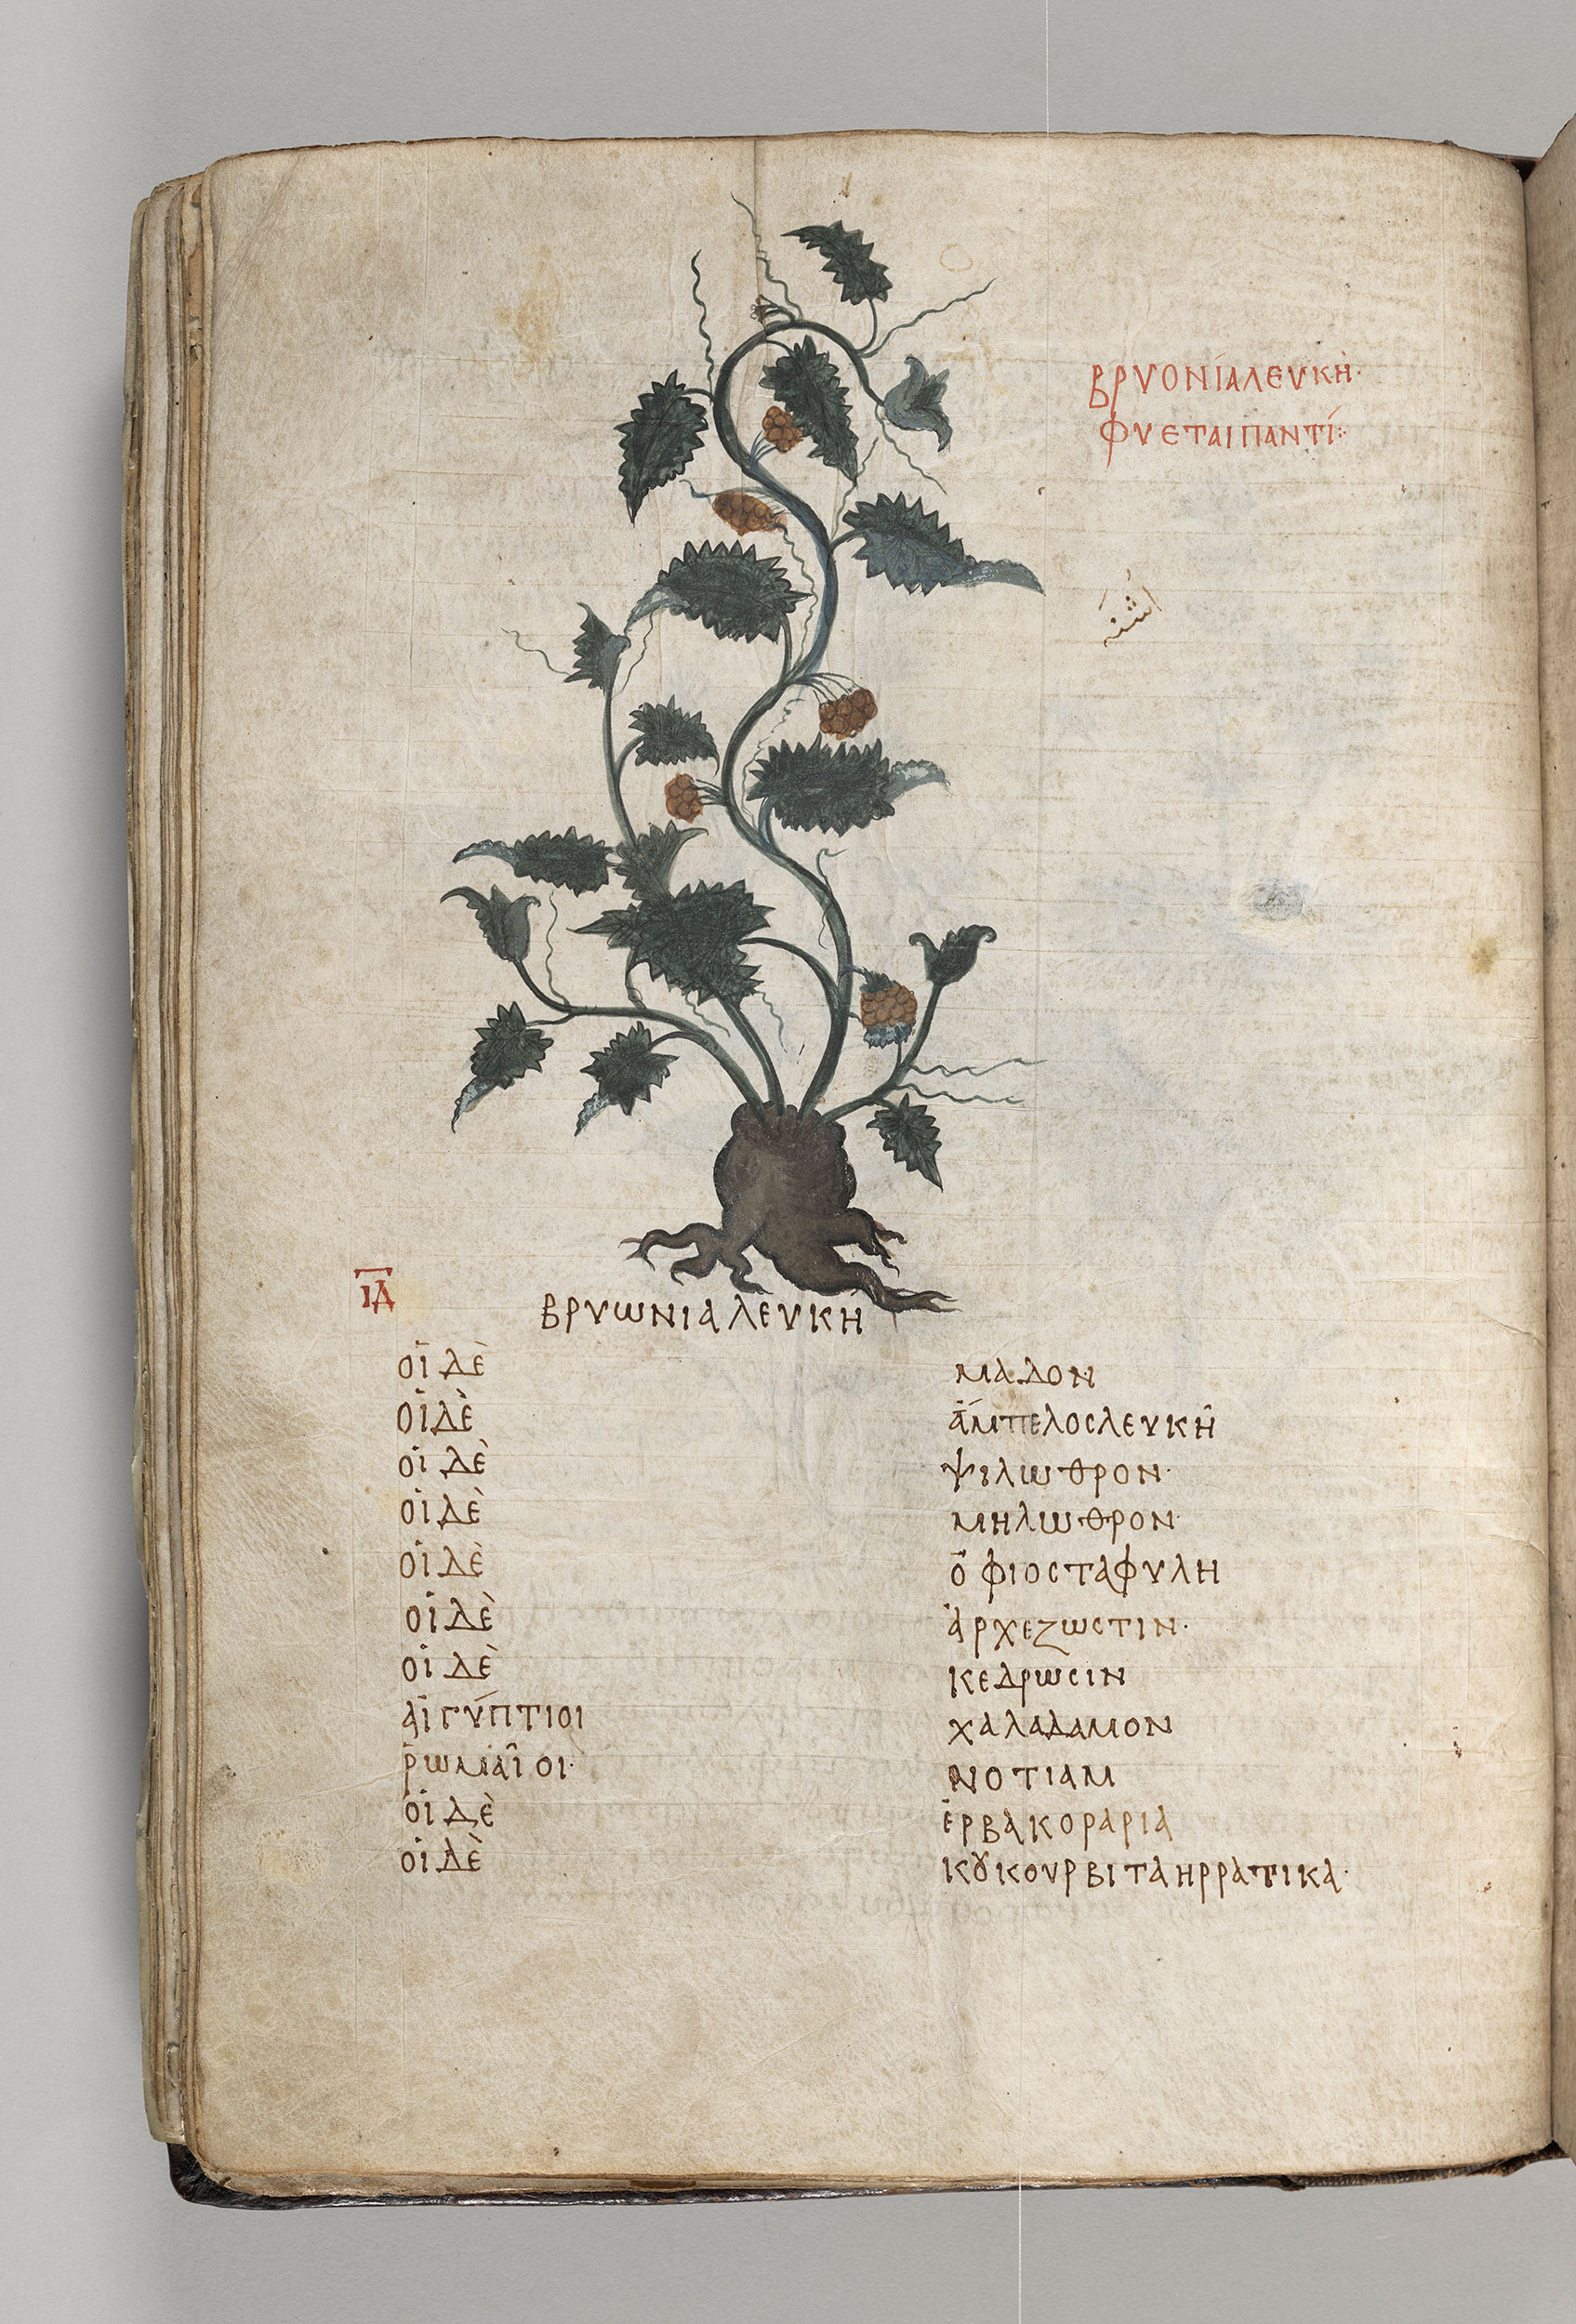 βρυονίαλευκὴ·
φυεταιπαντί:
ΙΔ
βρυωνια λευκὴ
οἱ δὲ μαδον
οἱ δὲ ἄμπελοςλευκῆ
οἱ δὲ ψιλωθρον·
οἱ δὲ μηλωθρον·
οἱ δὲ ὄφιοσταφυλη
οἱ δὲ ἀρχεζωστιν·
οἱ δὲ κεδρωσιν
αἰγύπτιοι χαλαδαμον
ῥωμαῖοι· νοτιαμ
οἱ δὲ ἑρβακοραρια
οἱ δὲ κȣκουρβιταηρρατικα·